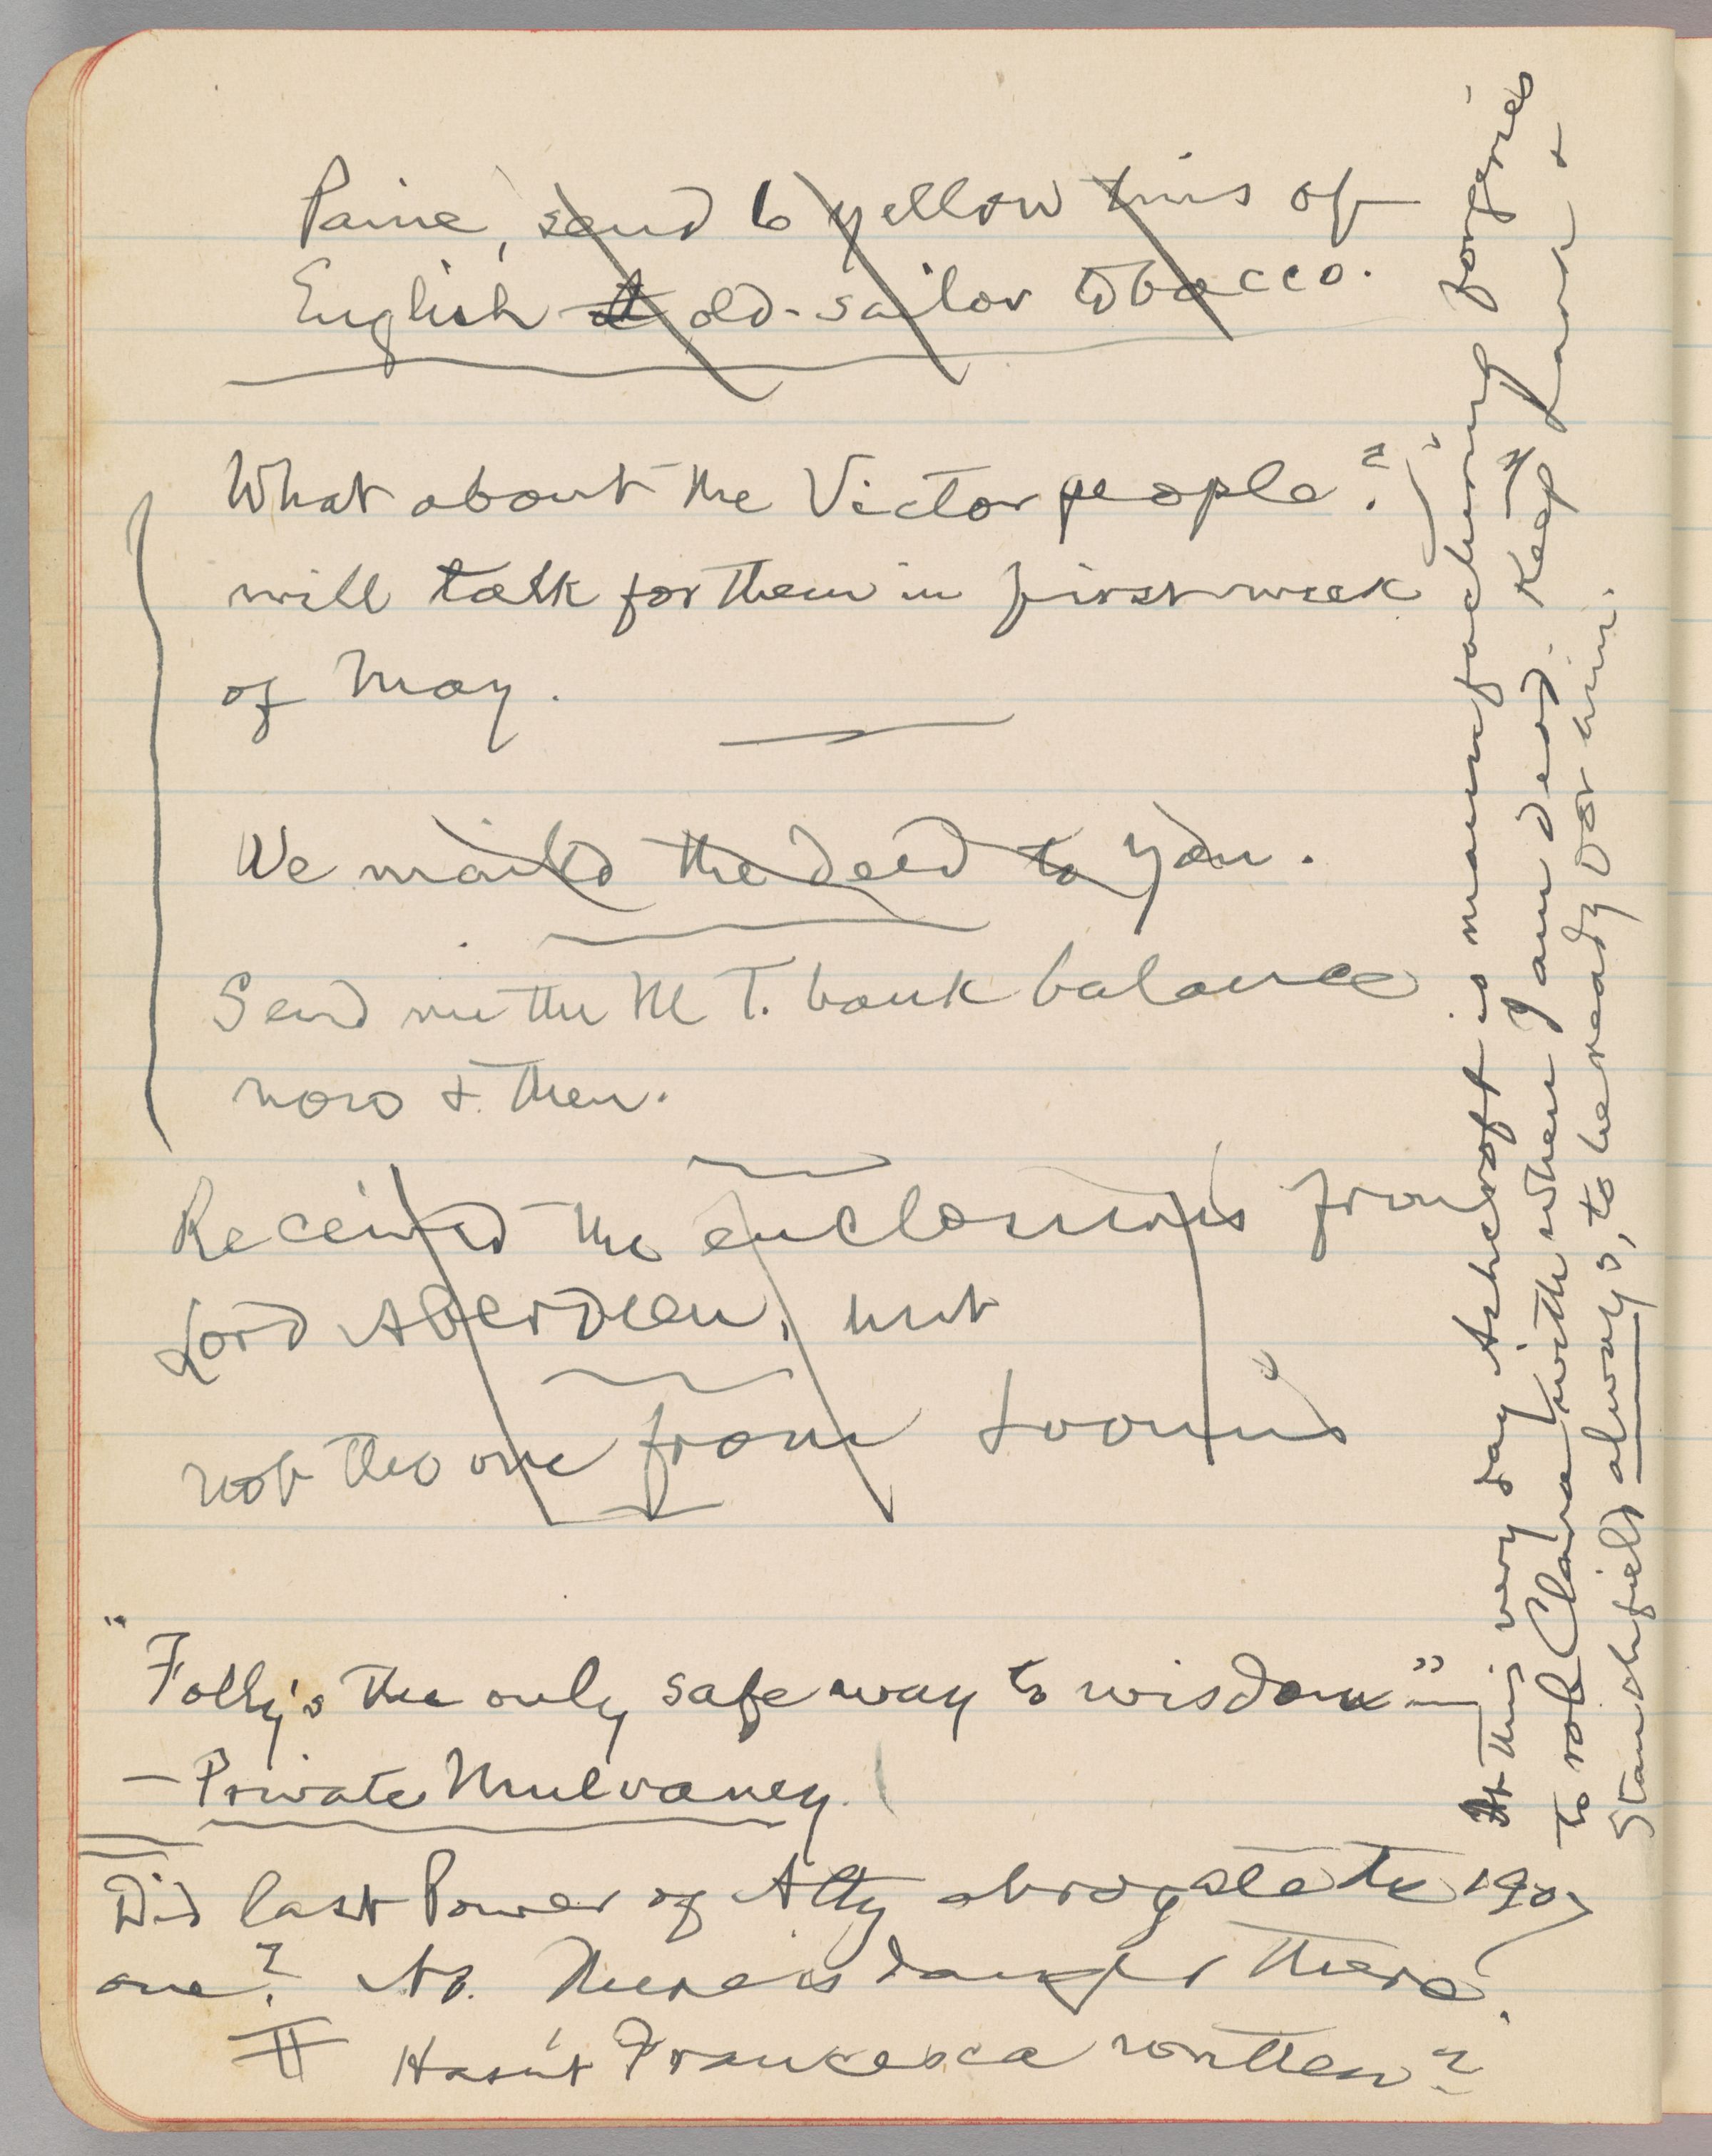 Paine, send 6 yellow tins of
English old-sailor tobacco.
What about the Victor people?
will talk for them in first week
of May.
We mailed the deed to you.
Send me the M T. bank balance
now & then.
Received the enclosures from
Lord Aberdeen, but
not the one from Loomis
"Folly's the only safe way to wisdom"—
— Private Mulvaney.
Did last Power of Atty abrogate the 1907
one? No. There is danger there.
Hasn't Francesca written?
At this very day Ashcroft is manufacturing forgeries
to rob Clara with when I am dead. Keep Lark &
Stanchfield always, to be ready for him.